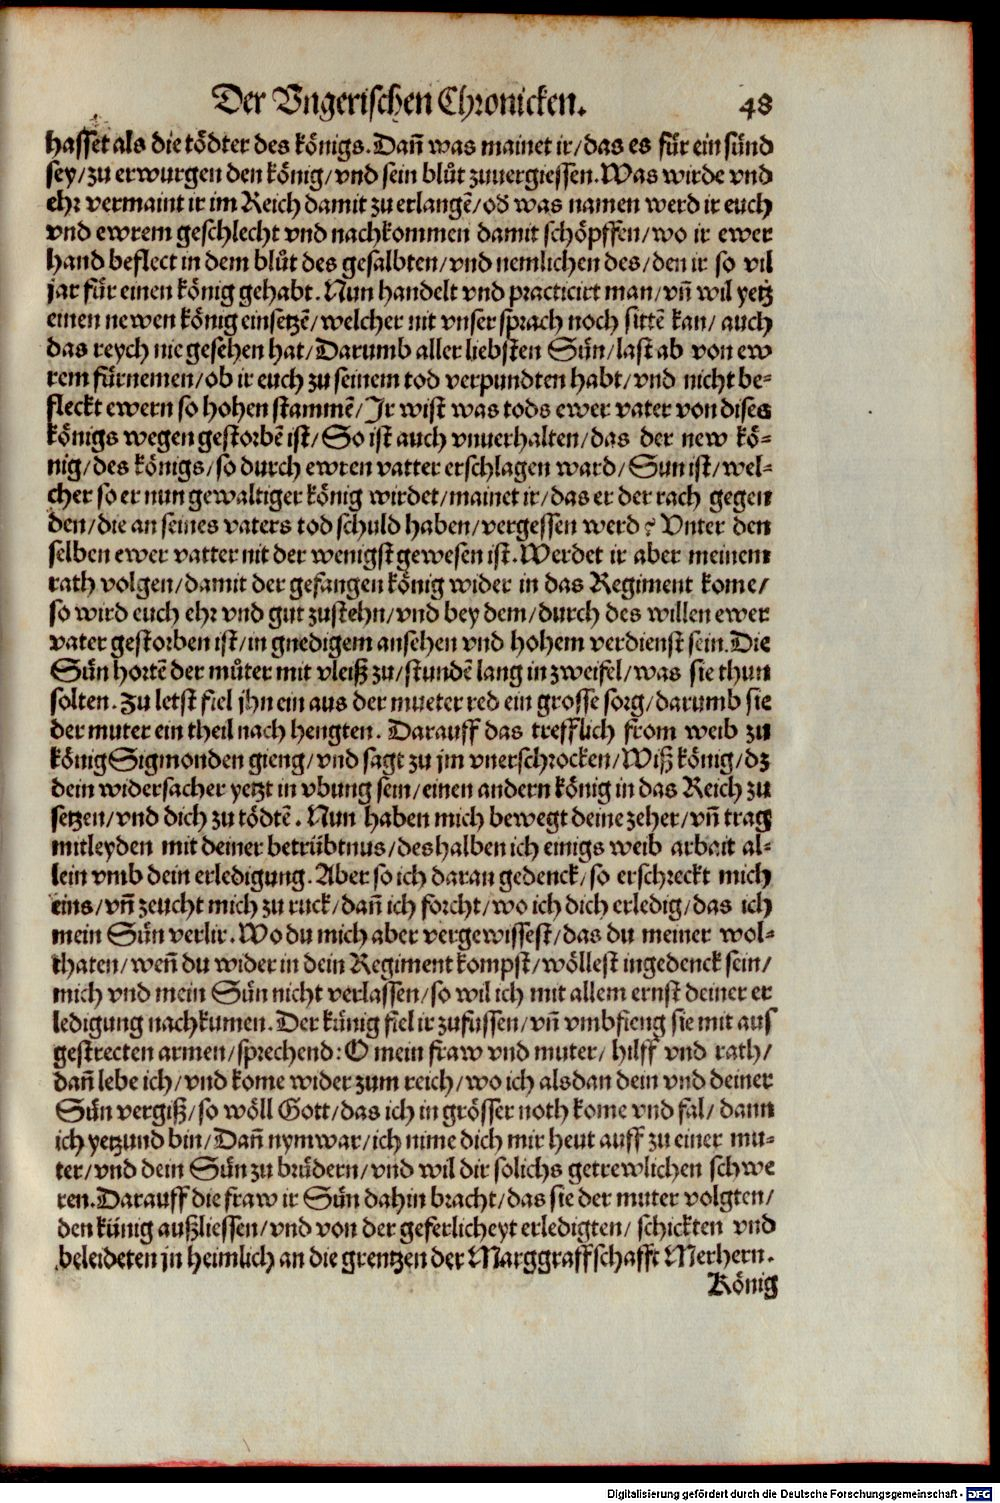 Der Vngerischen Chronicken. 48
hasset als die tödter des königs. Dañ was mainet ir/das es für ein sünd
sey/zu erwurgen den könig/vnd sein blůt zuuergiessen. Was wirde vnd
ehr vermaint ir im Reich damit zu erlangē/od was namen werd ir euch
vnd ewrem geschlecht vnd nachkommen damit schöpffen/wo ir ewer
hand beflect in dem blůt des gesalbten/vnd nemlichen des/den ir so vil
jar für einen könig gehabt. Nun handelt vnd practicirt man/vñ wil yetz
einen newen könig einsetzē/welcher nit vnser sprach noch sittē kan/auch
das reych nie gesehen hat/Darumb aller liebsten Sün/last ab von ew
rem fürnemen/ob ir euch zu seinem tod verpundten habt/vnd nicht be-
fleckt ewern so hohen stammē/Ir wist was tods ewer vater von dises
königs wegen gestorbē ist/So ist auch vnuerhalten/das der new kö-
nig/des königs/so durch ewren vatter erschlagen ward/Sun ist/wel-
cher so er nun gewaltiger könig wirdet/mainet ir/das er der rach gegen
den/die an seines vaters tod schuld haben/vergessen werd? Vnter den
selben ewer vatter nit der wenigst gewesen ist. Werdet ir aber meinem
rath volgen/damit der gefangen könig wider in das Regiment kome/
so wird euch ehr vnd gut zustehn/vnd bey dem/durch des willen ewer
vater gestorben ist/in gnedigem ansehen vnd hohem verdienst sein. Die
Sün hortē der můter mit vleiß zu/stundē lang in zweifel/was sie thun
solten. Zu letst fiel jhn ein aus der mueter red ein grosse sorg/darumb sie
der muter ein theil nach hengten. Darauff das trefflich from weib zu
könig Sigmonden gieng/vnd sagt zu jm vnerschrocken/Wiß könig/dz
dein widersacher yetzt in vbung sein/einen andern könig in das Reich zu
setzen/vnd dich zu tödtē. Nun haben mich bewegt deine zeher/vñ trag
mitleyden mit deiner betrübtnus/deshalben ich einigs weib arbait al-
lein vmb dein erledigung. Aber so ich daran gedenck/so erschreckt mich
eins/vñ zeucht mich zu ruck/dañ ich forcht/wo ich dich erledig/das ich
mein Sün verlir. Wo du mich aber vergewissest/das du meiner wol-
thaten/weñ du wider in dein Regiment kompst/wöllest ingedenck sein/
mich vnd mein Sün nicht verlassen/so wil ich mit allem ernst deiner er
ledigung nachkumen. Der künig fiel ir zufussen/vñ vmbfieng sie mit aus
gestrecten armen/sprechend: O mein fraw vnd muter/hilff vnd rath/
dañ lebe ich/vnd kome wider zum reich/wo ich alsdan dein vnd deiner
Sün vergiß/so wöll Gott/das ich in grösser noth kome vnd fal/dann
ich yetzund bin/Dañ nym war/ich nime dich mir heut auff zu einer mu-
ter/vnd dein Sün zu brüdern/vnd wil dir solichs getrewlichen schwe
ren. Darauff die fraw ir Sün dahin bracht/das sie der muter volgten/
den künig außliessen/vnd von der geferlicheyt erledigten/schickten vnd
beleideten jn heimlich an die grentzen der Marggraffschafft Merhern.
König
Digitalisierung gefördert durch die Deutsche Forschungsgemeinschaft - DFG